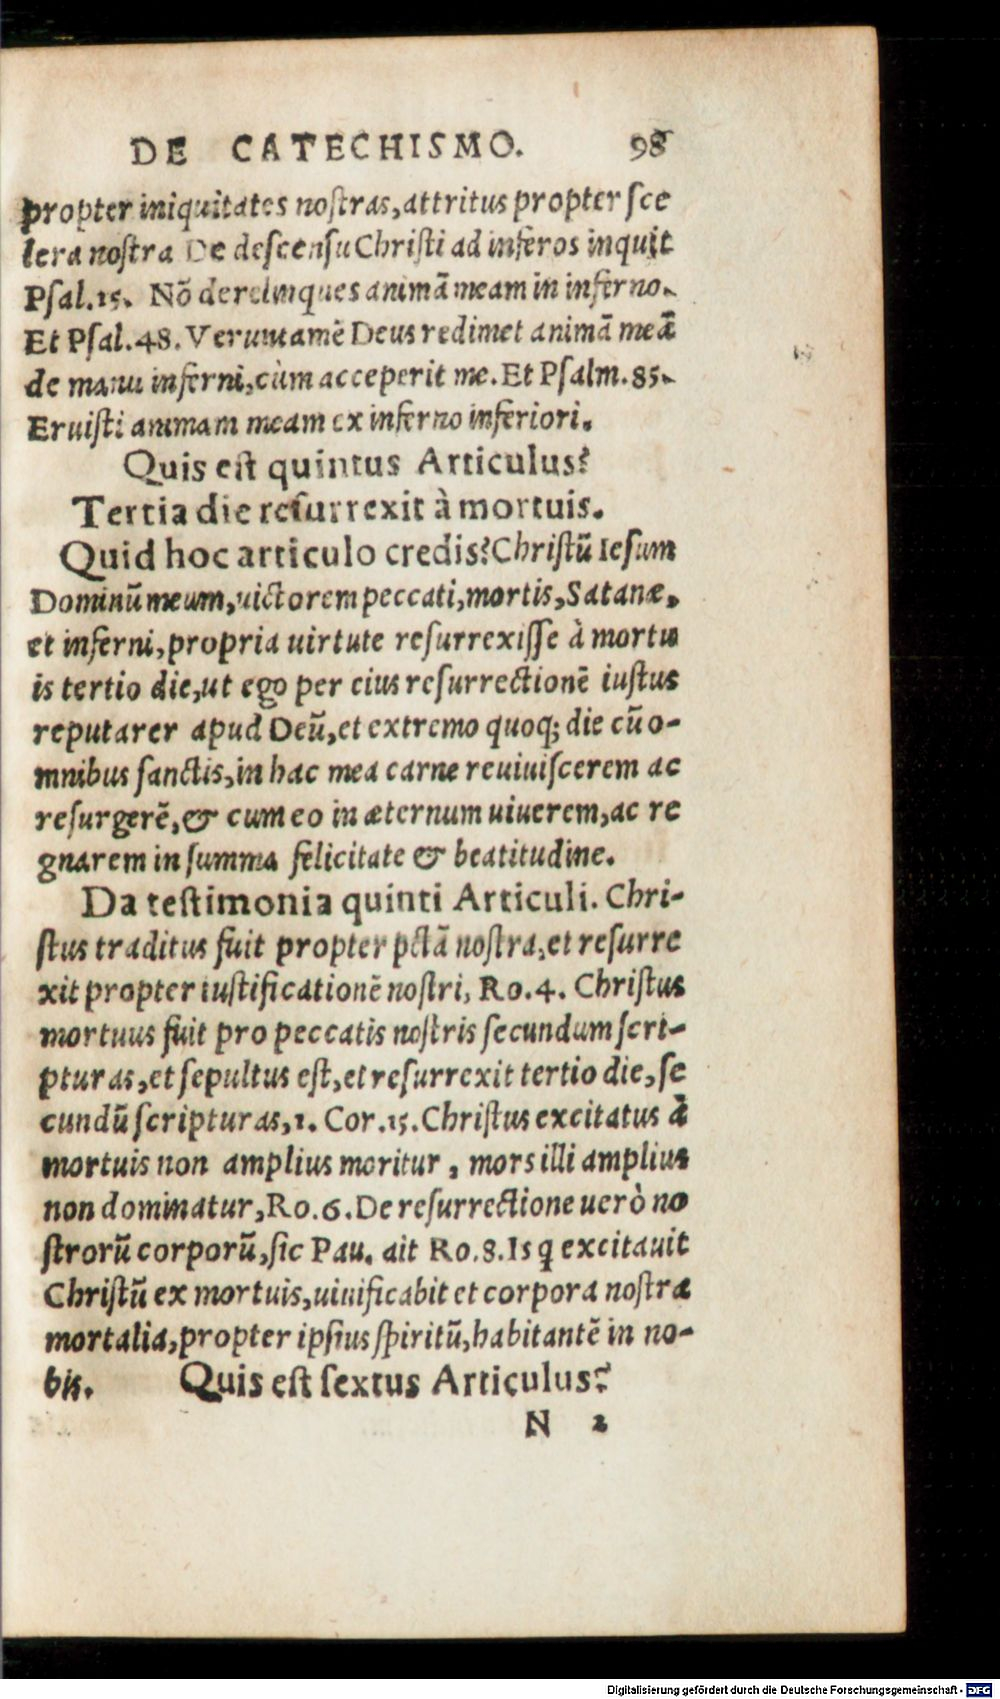 DE CATECHISMO. 98
propter iniquitates noſtras, attritus propter ſce
lera noſtra De deſcenſu Chriſti ad inferos inquit
Pſal.15. Nõ derelinques animã meam in inferno.
Et Pſal.48. Veruntamẽ Deus redimet animã meã
de manu inferni, cùm acceperit me. Et Pſalm.85.
Eruiſti animam meam ex inferno inferiori.
Quis eſt quintus Articulus?
Tertia die reſurrexit à mortuis.
Quid hoc articulo credis? Chriſtũ Ieſum
Dominũ meum, uictorem peccati, mortis, Satanæ,
et inferni, propria uirtute reſurrexiſſe à mortu
is tertio die, ut ego per eius reſurrectionẽ iuſtus
reputarer apud Deũ, et extremo quoq; die cũ o-
mnibus ſanctis, in hac mea carne reuiuiſcerem ac
reſurgerẽ, & cum eo in æternum uiuerem, ac re
gnarem in ſumma felicitate & beatitudine.
Da teſtimonia quinti Articuli. Chri-
ſtus traditus fuit propter pctã noſtra, et reſurre
xit propter iuſtificationẽ noſtri, Ro.4. Chriſtus
mortuus fuit pro peccatis noſtris ſecundum ſcri-
pturas, et ſepultus eſt, et reſurrexit tertio die, ſe
cundũ ſcripturas, 1. Cor.15. Chriſtus excitatus à
mortuis non amplius moritur, mors illi amplius
non dominatur, Ro.6. De reſurrectione uerò no
ſtrorũ corporũ, ſic Pau. ait Ro.8. Is q excitauit
Chriſtũ ex mortuis, uiuificabit et corpora noſtra
mortalia, propter ipſius ſpiritũ, habitantẽ in no-
bis. Quis eſt ſextus Articulus?
N 2
Digitalisierung gefördert durch die Deutsche Forschungsgemeinschaft - DFG